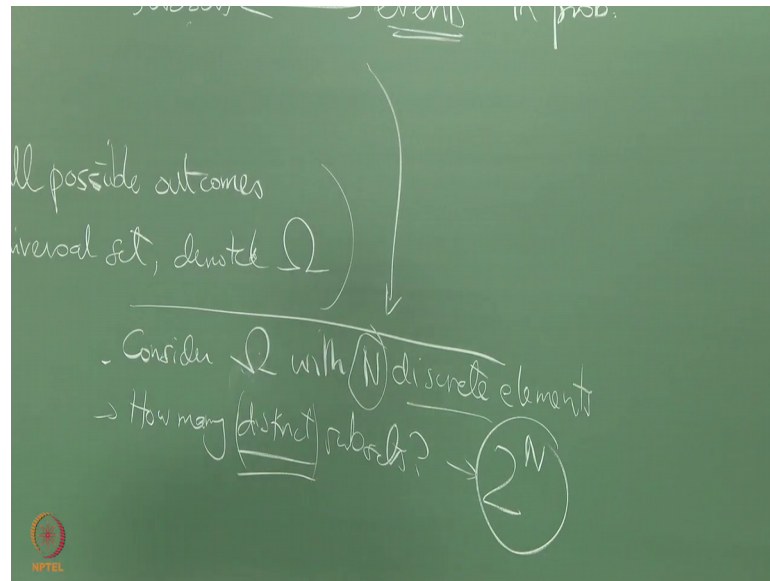 events in prob.
ll possible outcomes
iversal set, denoted Ω
- Consider Ω with N discrete elements
→ How many distinct subsets? → 2^N
NPTEL